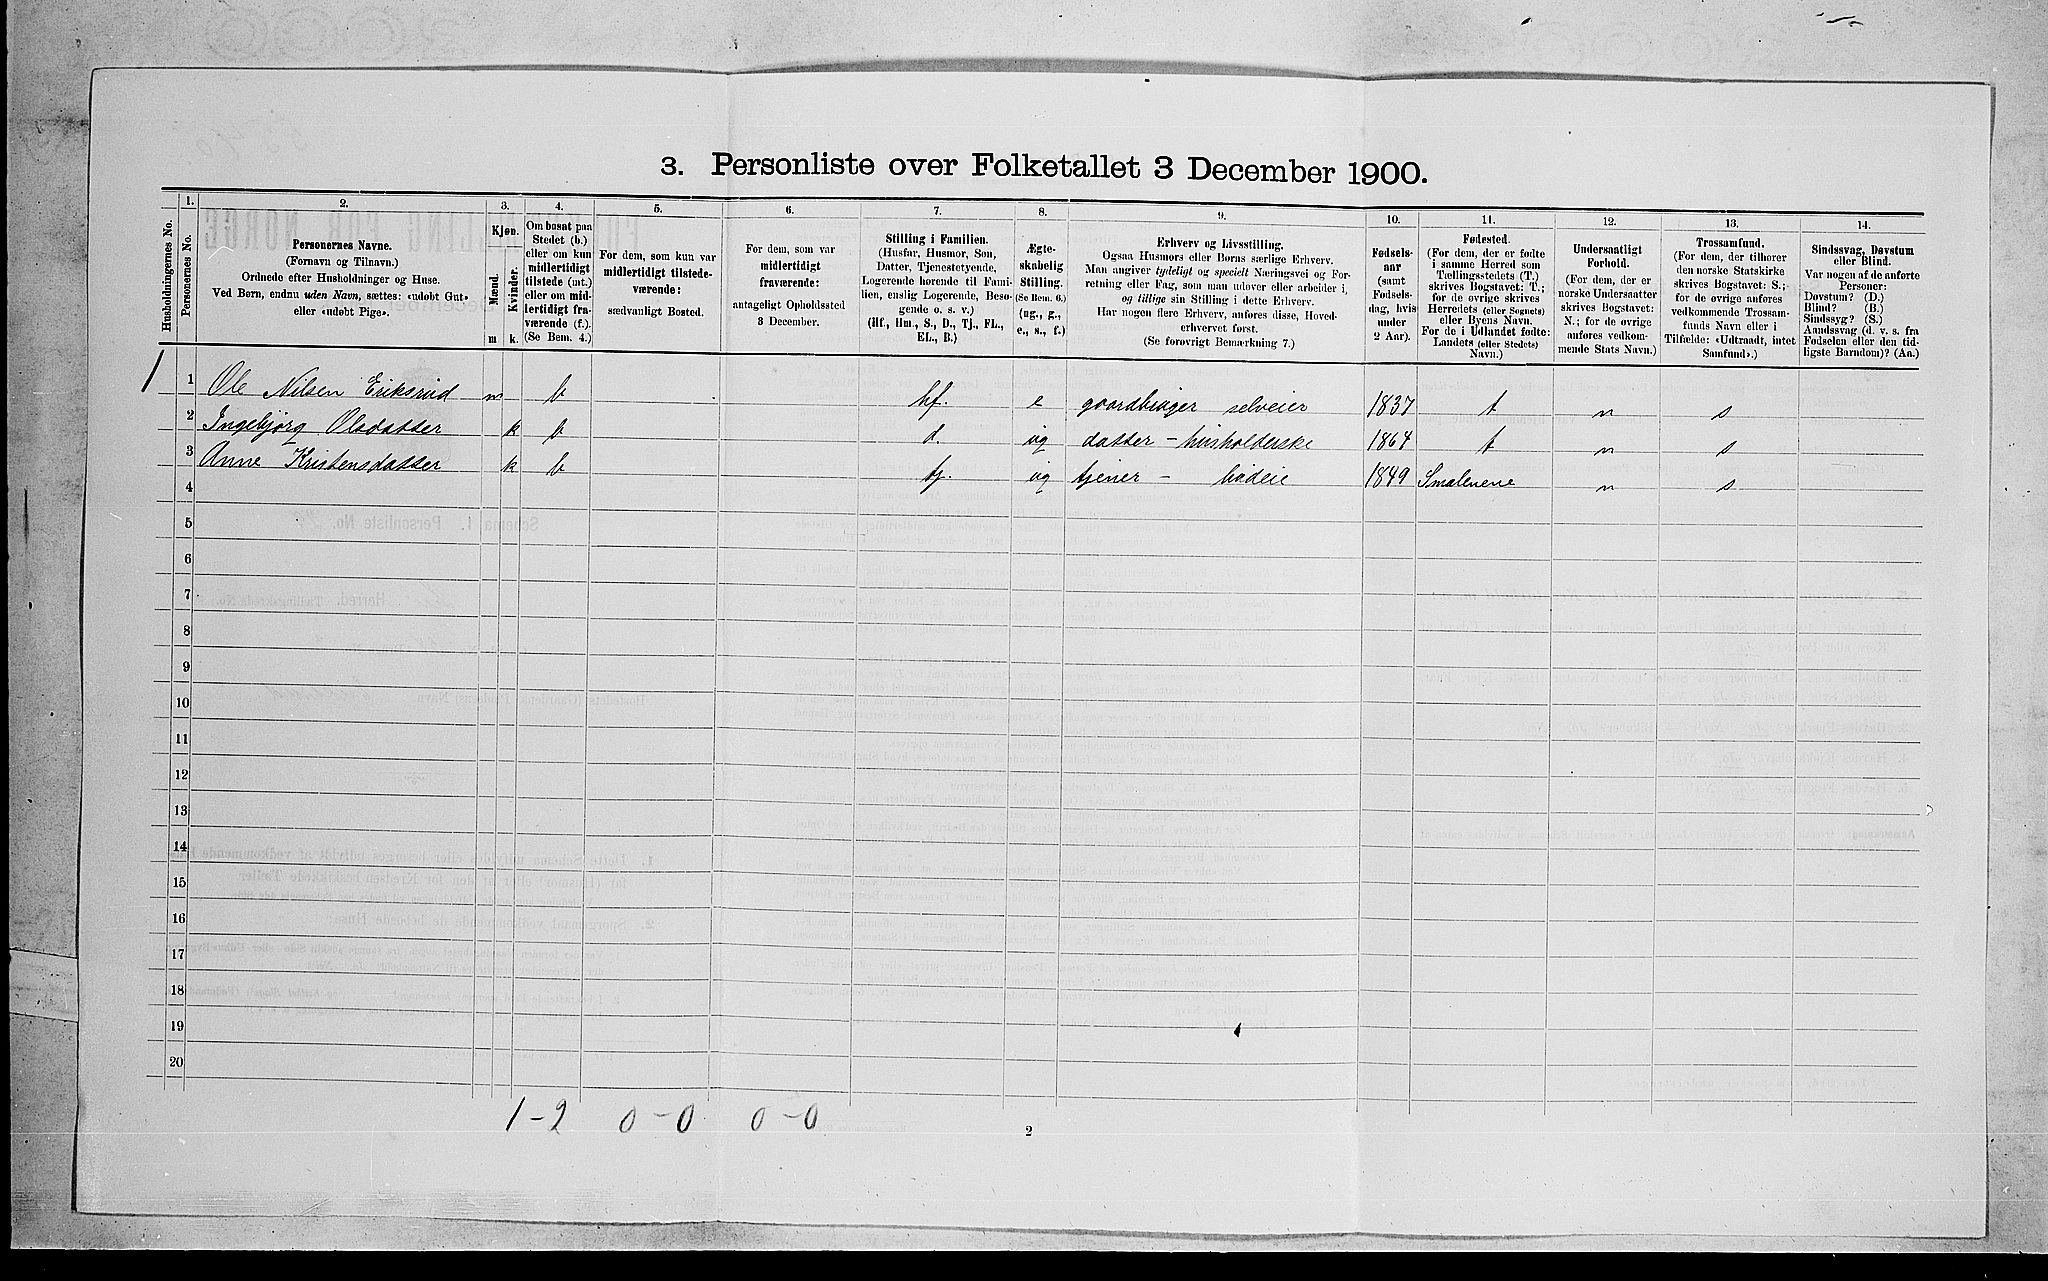 3. Personliste over Folketallet 3 December 1900.
Husholdningernes No.
1.
Personernes No.
2.
Personernes Navne.
(Fornavn og Tilnavn.)
Ordnede efter Husholdninger og Huse.
Ved Børn, endnu uden Navn, sættes: «udøbt Gut»
eller «udøbt Pige».
3.
Kjøn.
Mænd.
Kvinder.
m k.
4.
Om bosat paa
Stedet (b.)
eller om kun
midlertidigt
tilstede (mt.)
eller om mid-
lertidigt fra-
værende (f.).
(Se Bem. 4.)
5.
For dem, som kun var
midlertidigt tilstede-
værende:
sædvanligt Bosted.
6.
For dem, som var
midlertidigt
fraværende:
antageligt Opholdssted
3 December.
7.
Stilling i Familien.
(Husfar, Husmor, Søn,
Datter, Tjenestetyende,
Logerende hørende til Fami-
lien, enslig Logerende, Besø-
gende o. s. v.)
(hf., hm., S., D., Tj., FL.,
EL., B.)
8.
Ægte-
skabelig
Stilling.
(Se Bem. 6.)
(ug., g.,
e., s., f.)
9.
Erhverv og Livsstilling.
Ogsaa Husmors eller Børns særlige Erhverv.
Man angiver tydeligt og specielt Næringsvei og For-
retning eller Fag, som man udøver eller arbeider i,
og tillige sin Stilling i dette Erhverv.
Har nogen flere Erhverv, anføres disse, Hoved-
erhvervet først.
(Se forøvrigt Bemærkning 7.)
10.
Fødsels-
aar
(samt
Fødsels-
dag, hvis
under
2 Aar).
11.
Fødested.
(For dem, der er fødte
i samme Herred som
Tællingsstedets (T.)
skrives Bogstavet: T.;
for de øvrige skrives
Herredets (eller Sognets)
eller Byens Navn.
For de i Udlandet fødte:
Landets (eller Stedets)
Navn.)
12.
Undersaatligt
Forhold.
(For dem, der er
norske Undersaatter
skrives Bogstavet:
N.; for de øvrige
anføres vedkom-
mende Stats Navn.)
13.
Trossamfund.
(For dem, der tilhører
den norske Statskirke
skrives Bogstavet: S.;
for de øvrige anføres
vedkommende Trossam-
funds Navn eller i
Tilfælde: «Udtraadt, intet
Samfund».)
14.
Sindssvag, Døvstum
eller Blind.
Var nogen af de anførte
Personer:
Døvstum? (D.)
Blind? (B.)
Sindssyg? (S.)
Aandssvag (d. v. s. fra
Fødselen eller den tid-
ligste Barndom)? (Aa.)
1 1 Ole Nilsen Eriksrud m b hf. e gaardbruger selveier 1837 t n s
2 Ingebjörg Olsdatter k b d. ug datter - husholderske 1864 t n s
3 Anne Kristensdatter k b tj. ug tjener - budeie 1849 Smalenene n s
4
5
6
7
8
9
10
11
12
13
14
15
16
17
18
19
20
1-2 0-0 0-0
2